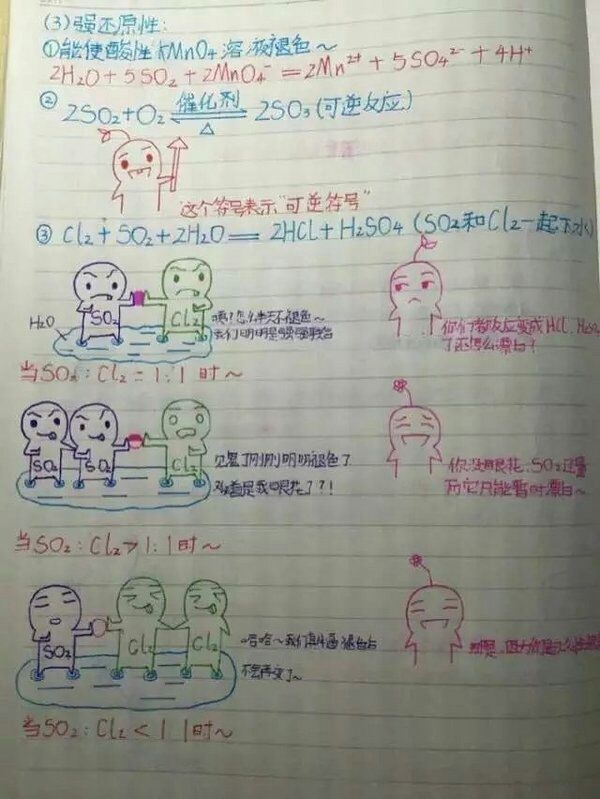 (3) 强还原性:
①能使酸性KMnO4溶液褪色~
2H2O+5SO2+2MnO4⁻=2Mn²⁺+5SO4²⁻+4H⁺
② 2SO2+O2 催化剂 △ ⇌ 2SO3(可逆反应)
"这个符号表示"可逆符号"
③ Cl2+SO2+2H2O=2HCl+H2SO4 (SO2和Cl2一起下水)
H2O
SO2
Cl2
嘿?怎么半天不褪色~
我们明明是强强联合
你们都反应变成HCl、H2SO4
了还怎么漂白?
当SO2:Cl2=1:1时~
SO2
SO2
Cl2
见鬼了刚刚明明褪色了
难道是我眼花了?!
你没眼花,SO2过量
所它只能暂时漂白~
当SO2:Cl2>1:1时~
SO2
Cl2
Cl2
哈哈~我们真牛逼褪色后
不会再变了~
当SO2:Cl2<1 1时~